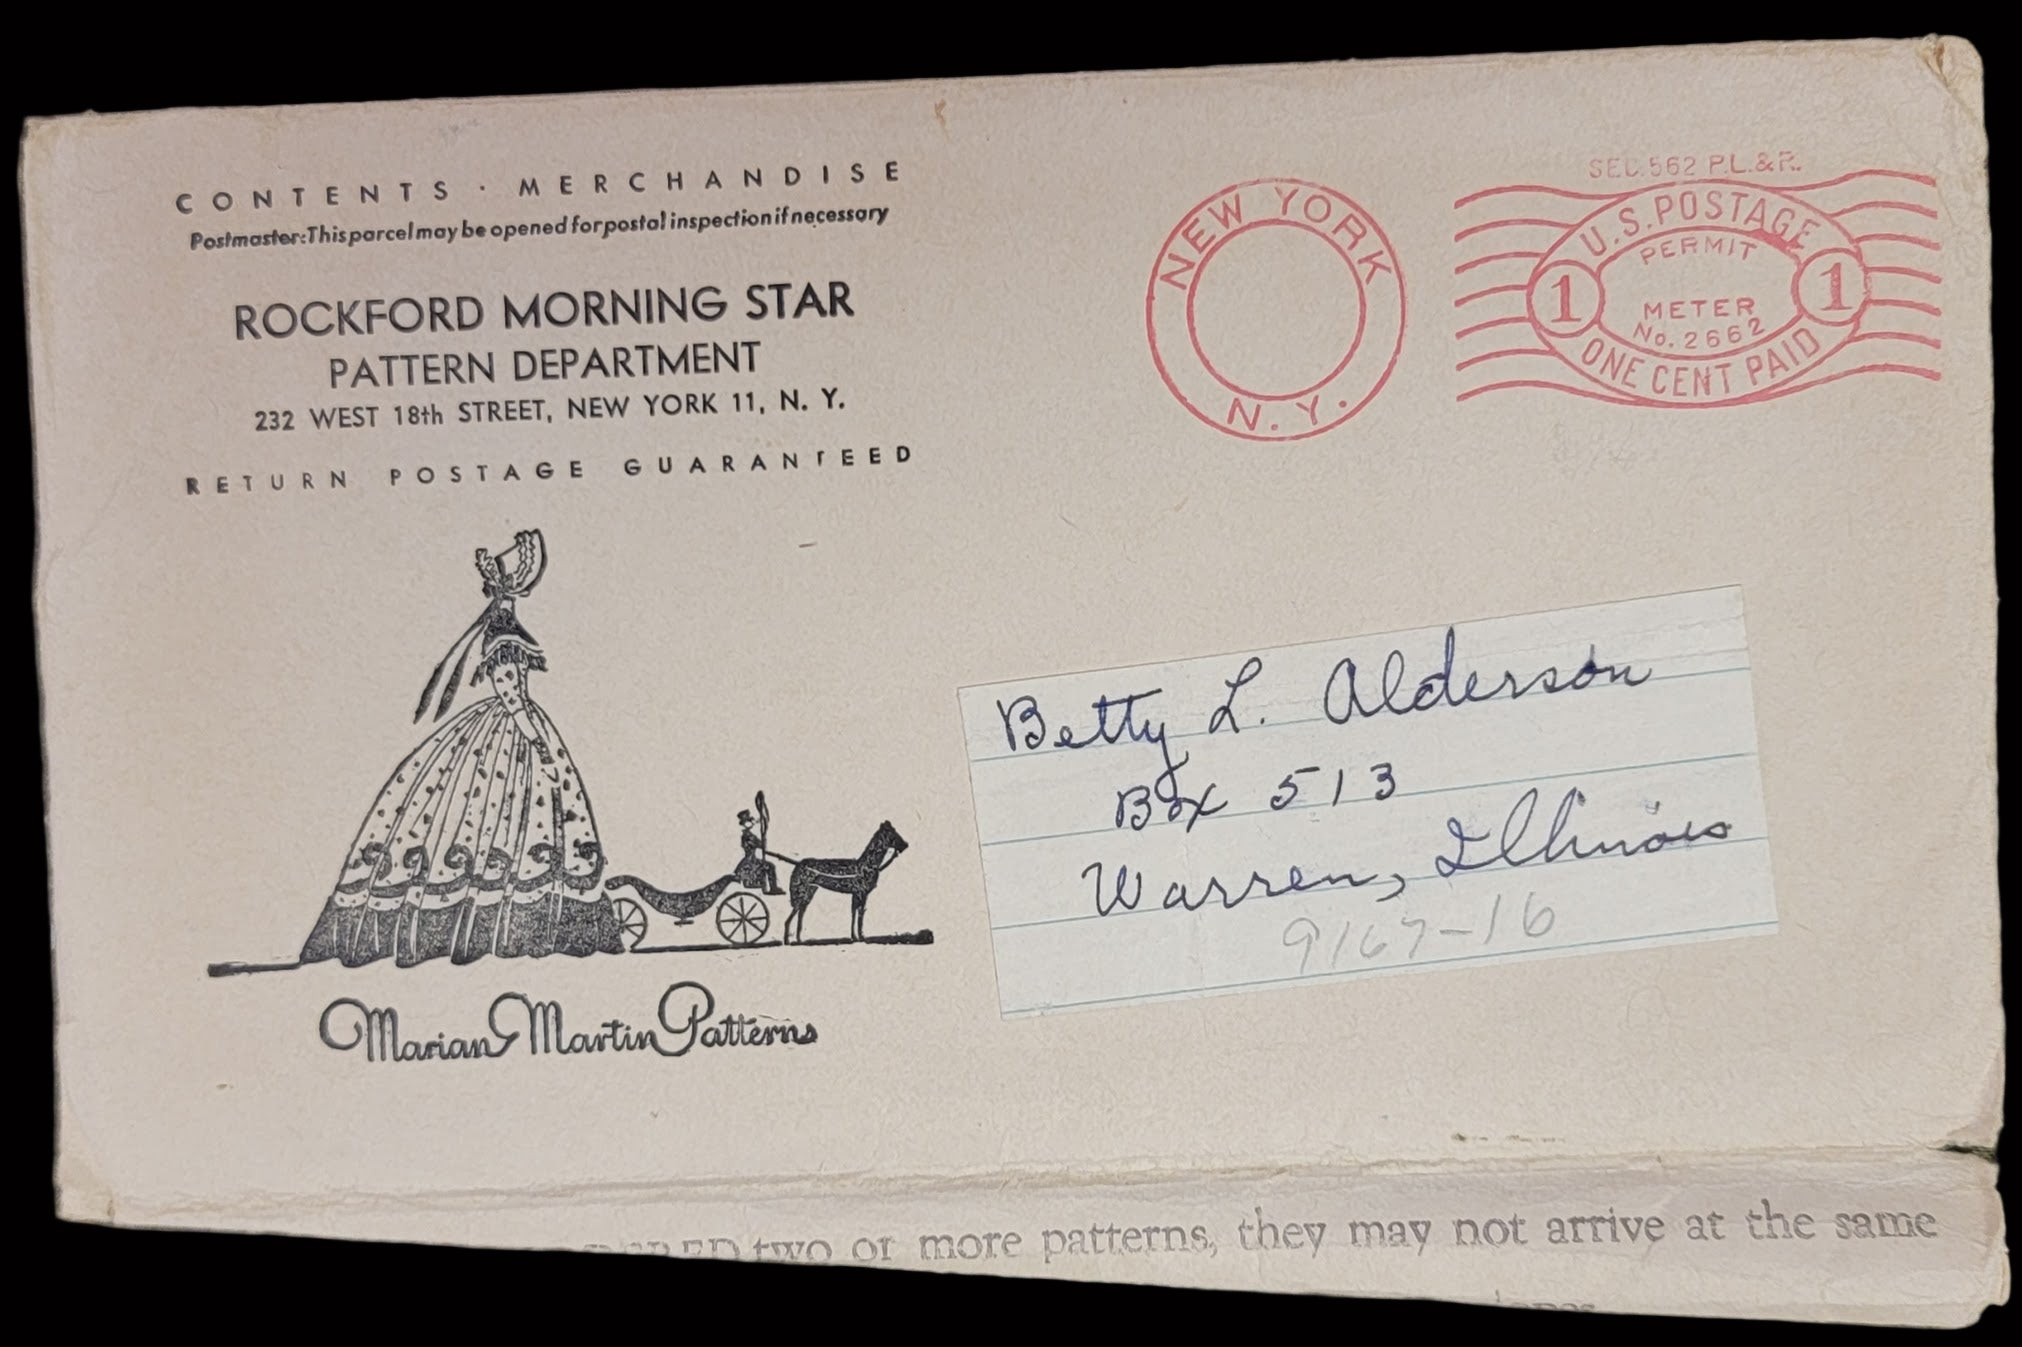 CONTENTS · MERCHANDISE
Postmaster: This parcel may be opened for postal inspection if necessary
ROCKFORD MORNING STAR
PATTERN DEPARTMENT
232 WEST 18th STREET, NEW YORK 11, N. Y.
RETURN POSTAGE GUARANTEED
Marian Martin Patterns
NEW YORK
N. Y.
SEC. 562 P.L.&R.
U.S. POSTAGE
PERMIT
1 1
METER
No. 2662
ONE CENT PAID
Betty L. Alderson
Box 513
Warren, Illinois
9167-16
two or more patterns, they may not arrive at the same